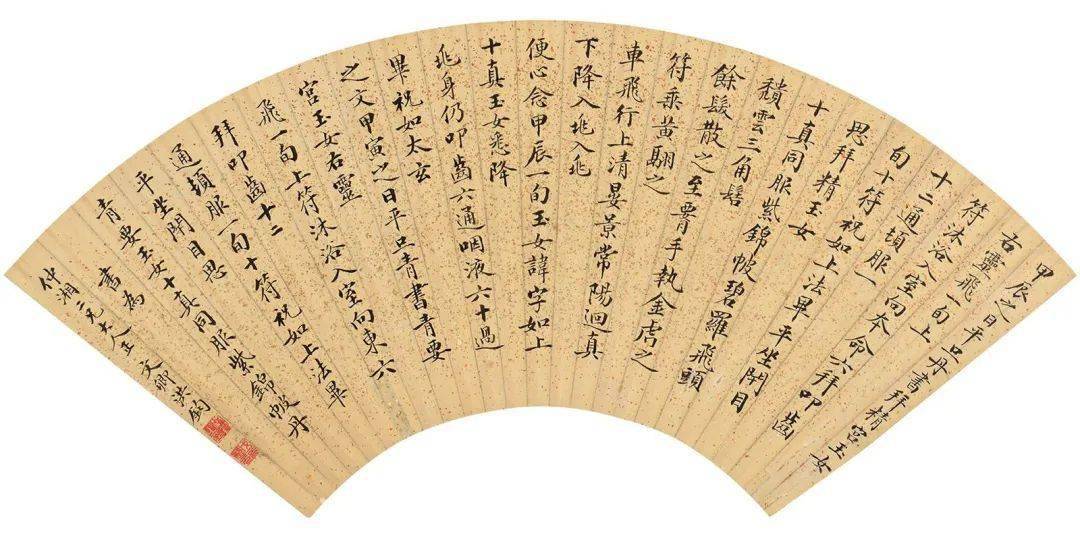 甲辰之日平旦丹書拜精宮玉女
右靈飛一旬上
符沐浴入室向本命六拜叩齒
十二通頓服一
旬十符祝如上法畢平坐閉目
思拜精玉女
十真同服紫錦帔碧羅飛頭
穨雲三角髻
餘髮散之至腰手執金虎之
符乘黃翮之
車飛行上清晏景常陽迴真
下降入兆入兆
便心念甲辰一旬玉女諱字如上
十真玉女悉降
兆身仍叩齒六通咽液六十過
畢祝如太玄
之文甲寅之日平旦青書青要
宮玉女右靈
飛一旬上符沐浴入室向東六
拜叩齒十二
通頓服一旬十符祝如上法畢
平坐閉目思
青要玉女十真同服紫錦帔丹
書為
仲湘二兄大人正 文卿洪鈞